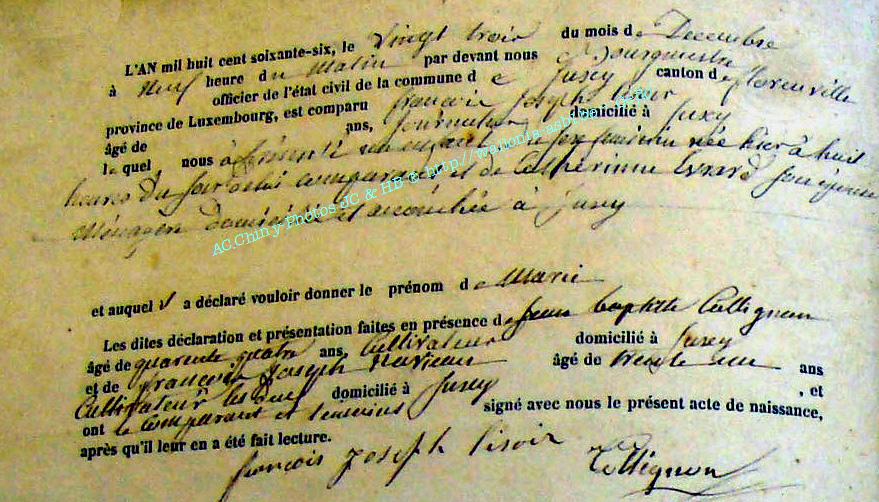 L'AN mil huit cent soixante-six, le vingt trois du mois de Decembre
à neuf heure du matin par devant nous Bourgmestre
officier de l'état civil de la commune de Jusey canton de florenville
province de Luxembourg, est comparu françois joseph
âgé de ans, journalier domicilié à Jusey
lequel, nous à présenté un enfant sexe féminin née hier à huit
heures du soir de lui comparant et de Catherinne Evrard son épouse
Ménagère domiciliée et accouchée à Jusey
et auquel il a déclaré vouloir donner le prénom de Marie
Les dites déclaration et présentation faites en présence de jean baptiste Collignon
âgé de quarente quatre ans, Cultivateur domicilié à Jusey
et de françois joseph âgé de trente un ans
Cultivateur les deux domicilié à Jusey, et
ont le comparant et temoins signé avec nous le présent acte de naissance,
après qu'il leur en a été fait lecture.
françois joseph pisvir Collignon
AC.Chiny Photos JC & HB & http://wanonia.asbl.